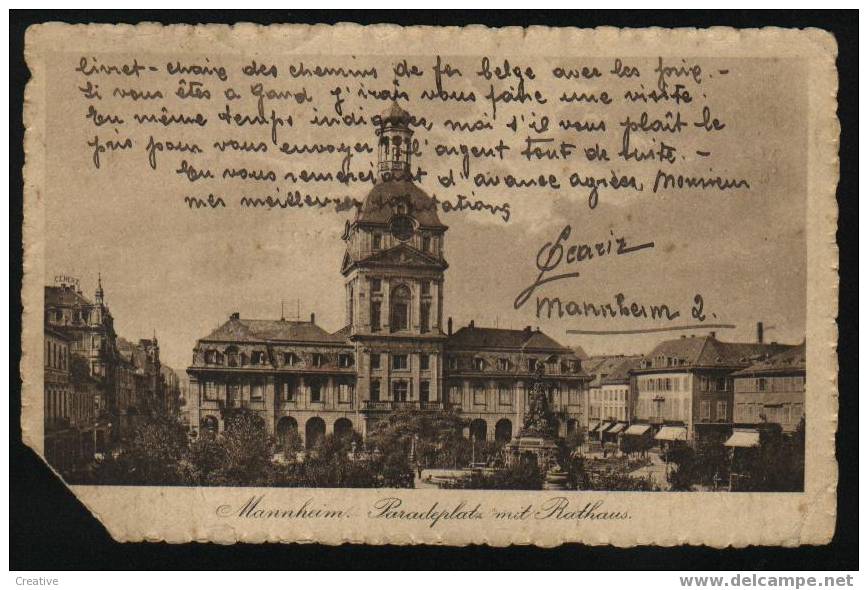 livret-chaix des chemins de fer belge avec les prix. -
Si vous êtes à Gand, j'irais vous faire une visite.
En même temps indiquez moi s'il vous plaît le
prix pour vous envoyer l'argent tout de suite. -
En vous remerciant d'avance agréez, Monsieur
mes meilleures salutations
Mannheim 2.
Mannheim. - Paradeplatz mit Rathaus.
Creative
http://www.delcampe.net